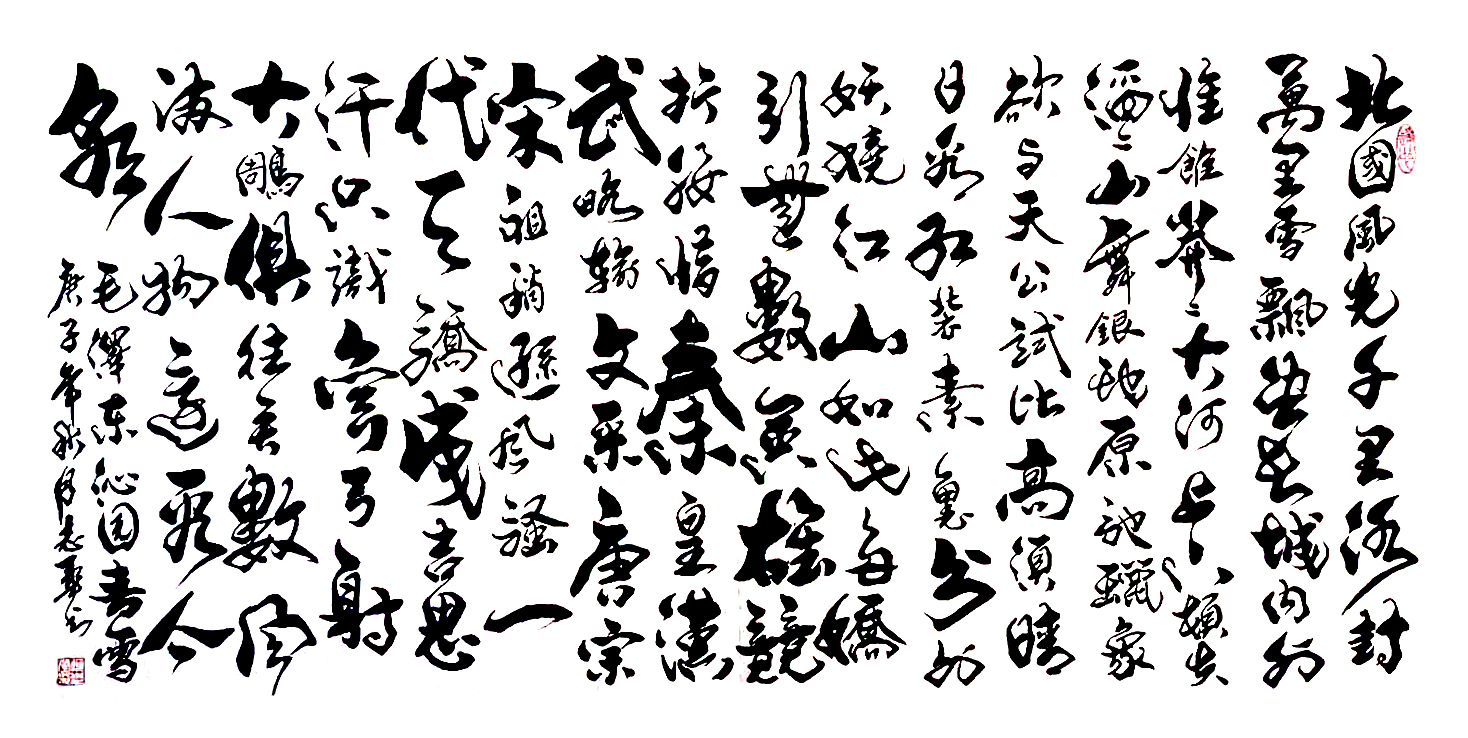 北國風光千里冰封
萬里雪飄望長城內外
惟餘莽〻大河上下頓失
滔〻山舞銀蛇原馳蠟象
欲与天公試比高須晴
日看紅裝素裹分外
妖嬈江山如此多嬌
引無數英雄競
折腰惜秦皇漢
武略輸文采唐宗
宋祖稍遜風騷一
代天驕成吉思
汗只識彎弓射
大鵰俱往矣數風
流人物還看今
朝
毛澤東沁园春雪
庚子年秋月